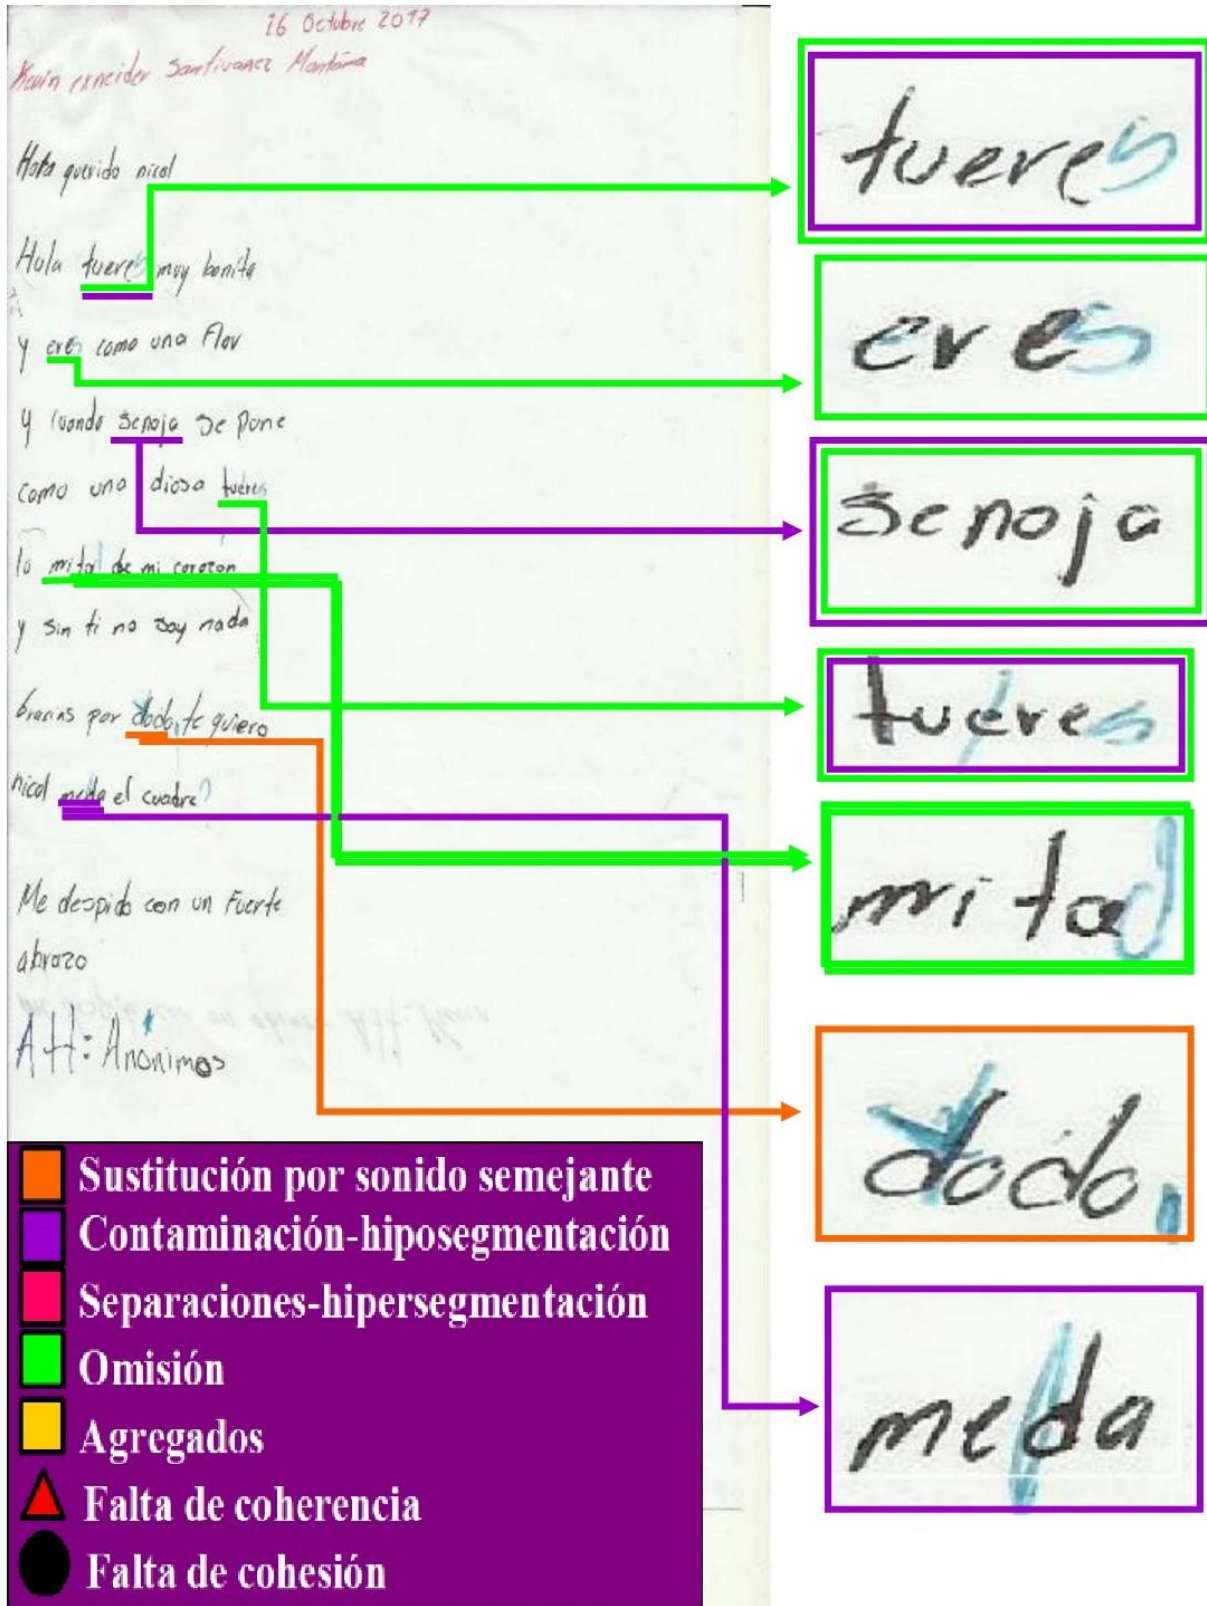 26 Octubre 2017
Hola querido nicol
Hola tueres muy bonita
y eres como una Flor
y cuando senoja se pone
como una diosa tueres
la mitad de mi corazón
y sin ti no soy nada
Gracias por dodo, te quiero
nicol meda el cuadre?
Me despido con un Fuerte
abrazo
Att: Anónimos
tueres
eres
senoja
tueres
mitad
dodo,
meda
Sustitución por sonido semejante
Contaminación-hiposegmentación
Separaciones-hipersegmentación
Omisión
Agregados
Falta de coherencia
Falta de cohesión